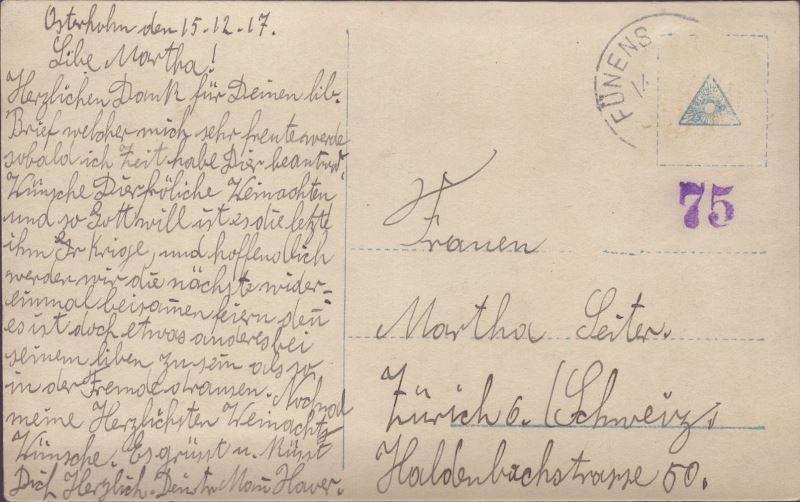 Osterhohn den 15.12.17.
Libe Martha!
Herzlichen Dank für Deinen lib.
Brief welcher mich sehr freute werde
sobald ich Zeit habe Dier beantw.
Wünsche Dier fröliche Weinachten
und so Gott will ist es die letzte
ihm Krige, und hoffendlich
werden wir die nächste wider-
einmal beisamen feiern den
es ist doch etwas anderes bei
seinem liben zu sein als so
in der Fremde Nochmal
meine Herzlichsten Weinachts
Wünsche. Es grüsst u. Küsst
Dich Herzlich. Dein Man Haver.
FÜNENS
75
Frauen
Martha Seiter.
Zürich 6. (Schweiz)
Haldenbachstrasse 50.